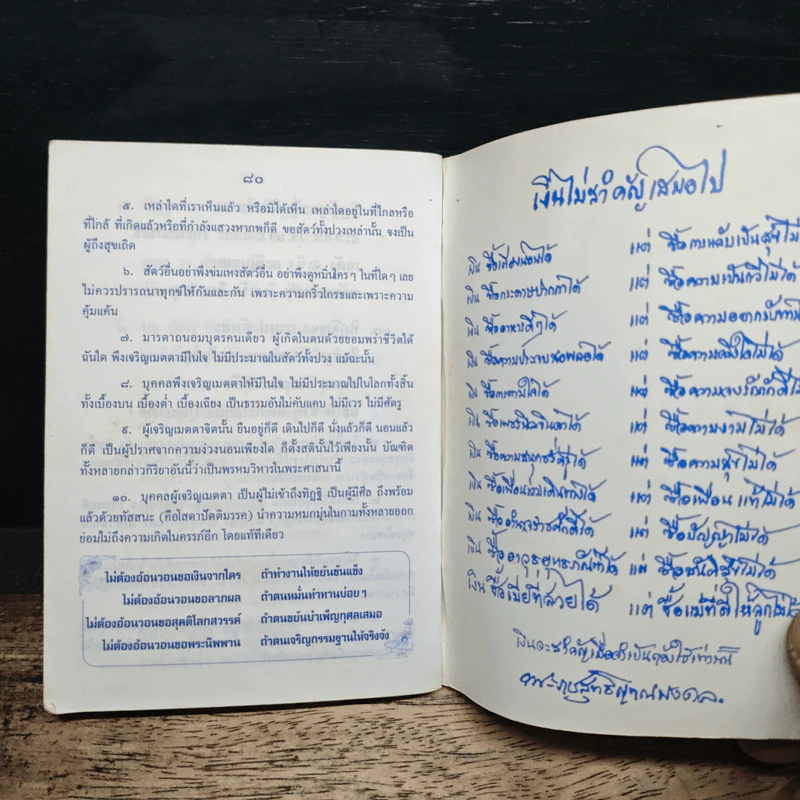 ๘๐
๕. เหล่าใดที่เราเห็นแล้ว หรือมิได้เห็น เหล่าใดอยู่ในที่ไกลหรือ
ที่ใกล้ ที่เกิดแล้วหรือที่กำลังแสวงหาภพก็ดี ขอสัตว์ทั้งปวงเหล่านั้น จงเป็น
ผู้ถึงสุขเถิด
๖. สัตว์อื่นอย่าพึงข่มเหงสัตว์อื่น อย่าพึงดูหมิ่นใครๆ ในที่ใดๆ เลย
ไม่ควรปรารถนาทุกข์ให้กันและกัน เพราะความกริ้วโกรธและเพราะความ
คุ้มแค้น
๗. มารดาถนอมบุตรคนเดียว ผู้เกิดในตนด้วยยอมพร่าชีวิตได้
ฉันใด พึงเจริญเมตตามีในใจ ไม่มีประมาณในสัตว์ทั้งปวง แม้ฉะนั้น
๘. บุคคลพึงเจริญเมตตาให้มีในใจ ไม่มีประมาณไปในโลกทั้งสิ้น
ทั้งเบื้องบน เบื้องต่ำ เบื้องเฉียง เป็นธรรมอันไม่คับแคบ ไม่มีเวร ไม่มีศัตรู
๙. ผู้เจริญเมตตาจิตนั้น ยืนอยู่ก็ดี เดินไปก็ดี นั่งแล้วก็ดี นอนแล้ว
ก็ดี เป็นผู้ปราศจากความง่วงนอนเพียงใด ก็ตั้งสตินั้นไว้เพียงนั้น บัณฑิต
ทั้งหลายกล่าวกิริยาอันนี้ว่าเป็นพรหมวิหารในพระศาสนานี้
๑๐. บุคคลผู้เจริญเมตตา เป็นผู้ไม่เข้าถึงทิฏฐิ เป็นผู้มีศีล ถึงพร้อม
แล้วด้วยทัสสนะ (คือโสดาปัตติมรรค) นำความหมกมุ่นในกามทั้งหลายออก
ย่อมไม่ถึงความเกิดในครรภ์อีก โดยแท้ทีเดียว
ไม่ต้องอ้อนวอนขอเงินจากใคร ถ้าทำงานให้ขยันขันแข็ง
ไม่ต้องอ้อนวอนขอลาภผล ถ้าตนหมั่นทำทานบ่อยๆ
ไม่ต้องอ้อนวอนขอสุคติโลกสวรรค์ ถ้าตนขยันบำเพ็ญกุศลเสมอ
ไม่ต้องอ้อนวอนขอพระนิพพาน ถ้าตนเจริญกรรมฐานให้จริงจัง
เงินไม่สำคัญเสมอไป
เงิน ซื้อเตียงนอนได้ แต่ ซื้อการหลับเป็นสุขไม่
เงิน ซื้อกระดาษปากกาได้ แต่ ซื้อความเป็นกวีไม่ได้
เงิน ซื้ออาหารดีๆได้ แต่ ซื้อความอยากรับทาน
เงิน ซื้อความประจบสอพลอได้ แต่ ซื้อความจริงใจไม่ได้
เงิน ซื้อการตามใจได้ แต่ ซื้อความจงรักภักดีไม่
เงิน ซื้อเพชรนิลจินดาได้ แต่ ซื้อความงามไม่ได้
เงิน ซื้อความสนุกชั่วครู่ได้ แต่ ซื้อความสุขไม่ได้
เงิน ซื้อเพื่อนร่วมเดินทางได้ แต่ ซื้อเพื่อนแท้ไม่ได้
เงิน ซื้ออำนาจวาสนาได้ แต่ ซื้อปัญญาไม่ได้
เงิน ซื้ออาวุธยุทธภัณฑ์ได้ แต่ ซื้อสันติสุขไม่ได้
เงิน ซื้อเมียที่สวยได้ แต่ ซื้อแม่ที่ดีให้ลูกไม่ได้
เงินจะสำคัญเมื่อจำเป็นต้องใช้เท่านั้น
พระราชสุทธิญาณมงคล.